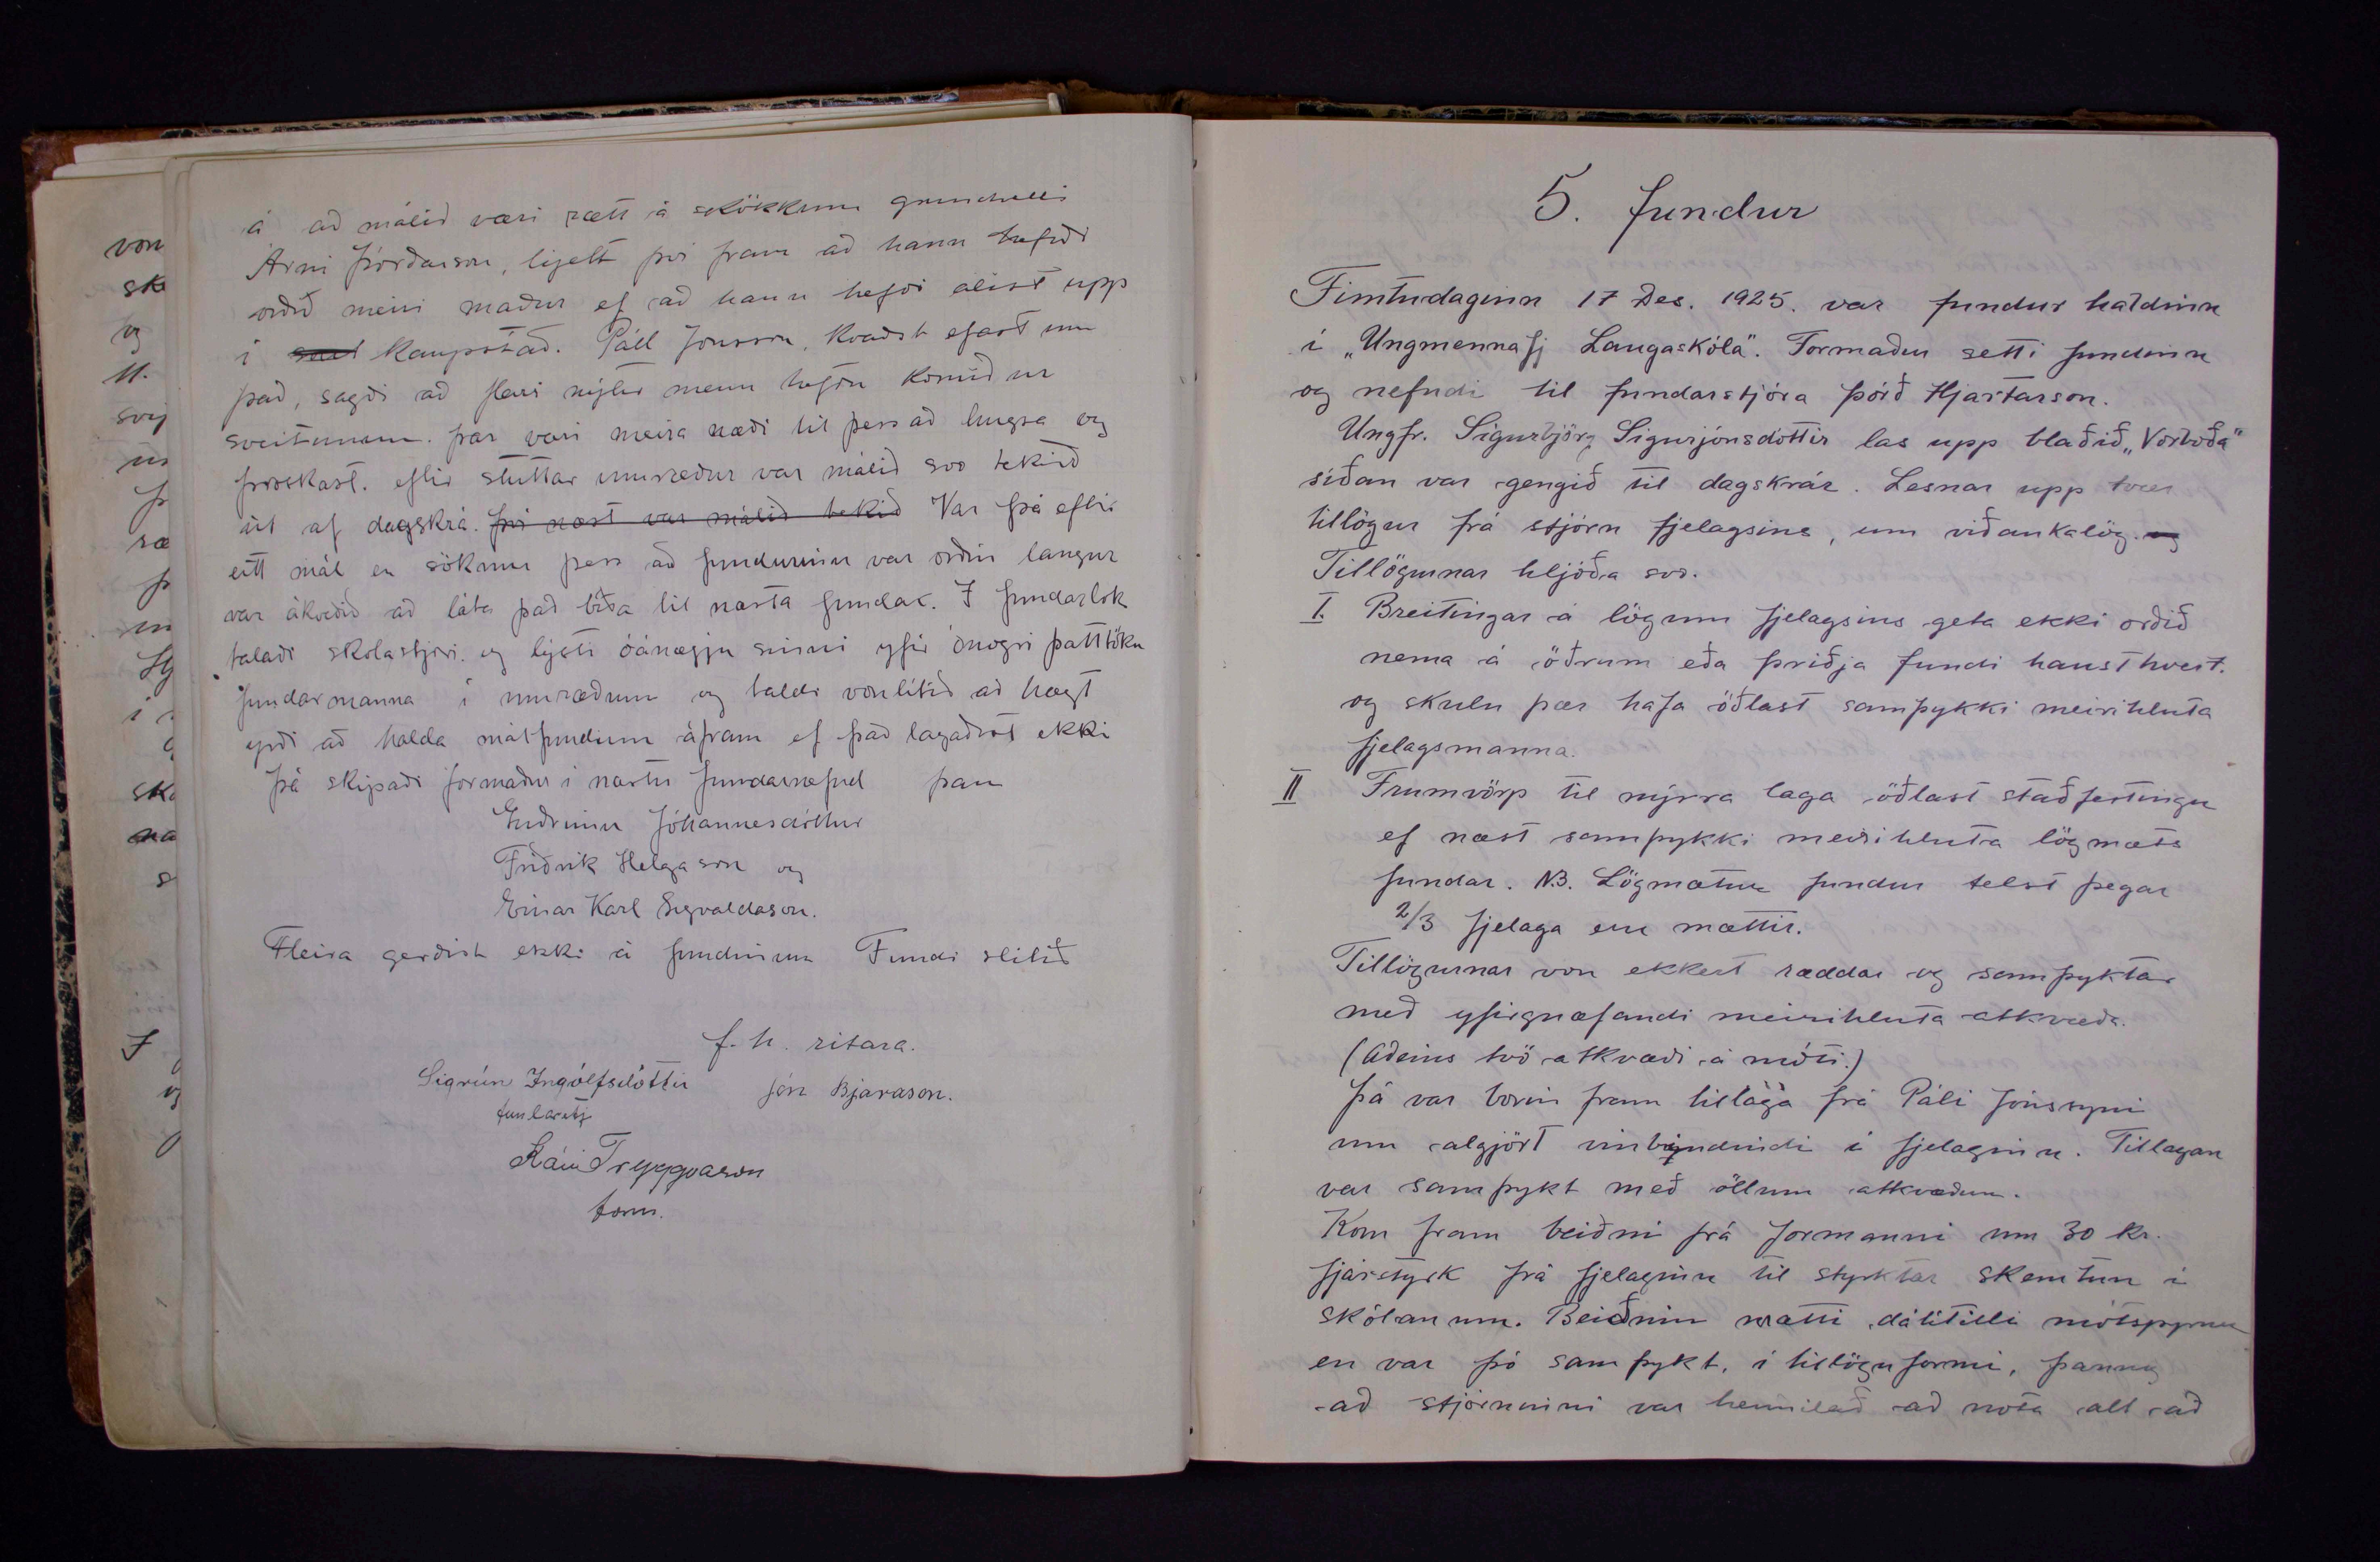 á að málið væri rætt á skökkum grundvelli
Árni Þórðarson, hjelt því fram að hann hefði
orðið meiri maður ef að hann hefði alist upp
í kaupstað. Páll Jónsson, kvaðst efast um
það, sagði að fleiri nýtir menn hefðu komið úr
sveitunum. þar væri meira næði til þess að hugsa og
þroskast. eftir stuttar umræður var málið svo tekið
út af dagskrá. því næst var málið tekið Var þá eftir
eitt mál en sökum þess að fundurinn var orðin langur
var ákveðið að láta það bíða til næsta fundar. I fundarlok
talaði skólastjóri og lýsti óánægju sinni yfir ónógri þátttöku
fundarmanna í umræðum og taldi vonlítið að hægt
yrði að halda málfundum áfram ef það lagaðist ekki
þá skipaði formaður í næstu fundarnefnd þau
Guðrúnu Jóhannesdóttur
Friðrik Helgason og
Einar Karl Sigvaldason.
Fleira gerðist ekki á fundinum Fundi slitið
f. h. ritara.
Sigrún Ingólfsdóttir Jón Bjarnason.
fundarstj
Kári Tryggvason
form.
5. fundur
Fimtudaginn 17 Des. 1925. var fundur haldinn
í „Ungmennafj Laugaskóla". Formaður setti fundinn
og nefndi til fundarstjóra Þórð Hjartarson.
Ungfr. Sigurbjörg Sigurjónsdóttir las upp blaðið „Vorboða"
síðan var gengið til dagskrár. Lesnar upp tvær
tillögur frá stjórn fjelagsins, um viðaukalög. og
Tillögurnar hljóða svo.
I. Breitingar á lögum fjelagsins geta ekki orðið
nema á öðrum eða þriðja fundi haust hvert.
og skulu þær hafa öðlast samþykki meirihluta
fjelagsmanna.
II Frumvörp til nýrra laga öðlast staðfestingu
ef næst samþykki meirihluta lögmæts
fundar. N.B. Lögmætur fundur telst þegar
2/3 fjelaga eru mættir.
Tillögurnar voru ekkert ræddar og samþyktar
með yfirgnæfandi meirihluta atkvæða.
(Aðeins tvö atkvæði á móti.)
Þá var borin fram tillaga frá Páli Jónssyni
um algjört vinbindindi í fjelaginu. Tillagan
var samþykt með öllum atkvæðum.
Kom fram beiðni frá formanni um 30 kr.
fjárstyrk frá fjelaginu til styrktar skemtun í
skólanum. Beiðnin mætti dálitilli mótspyrnu
en var þó samþykt, í tillöguformi, þannig
að stjórninni var heimilað að nota alt að